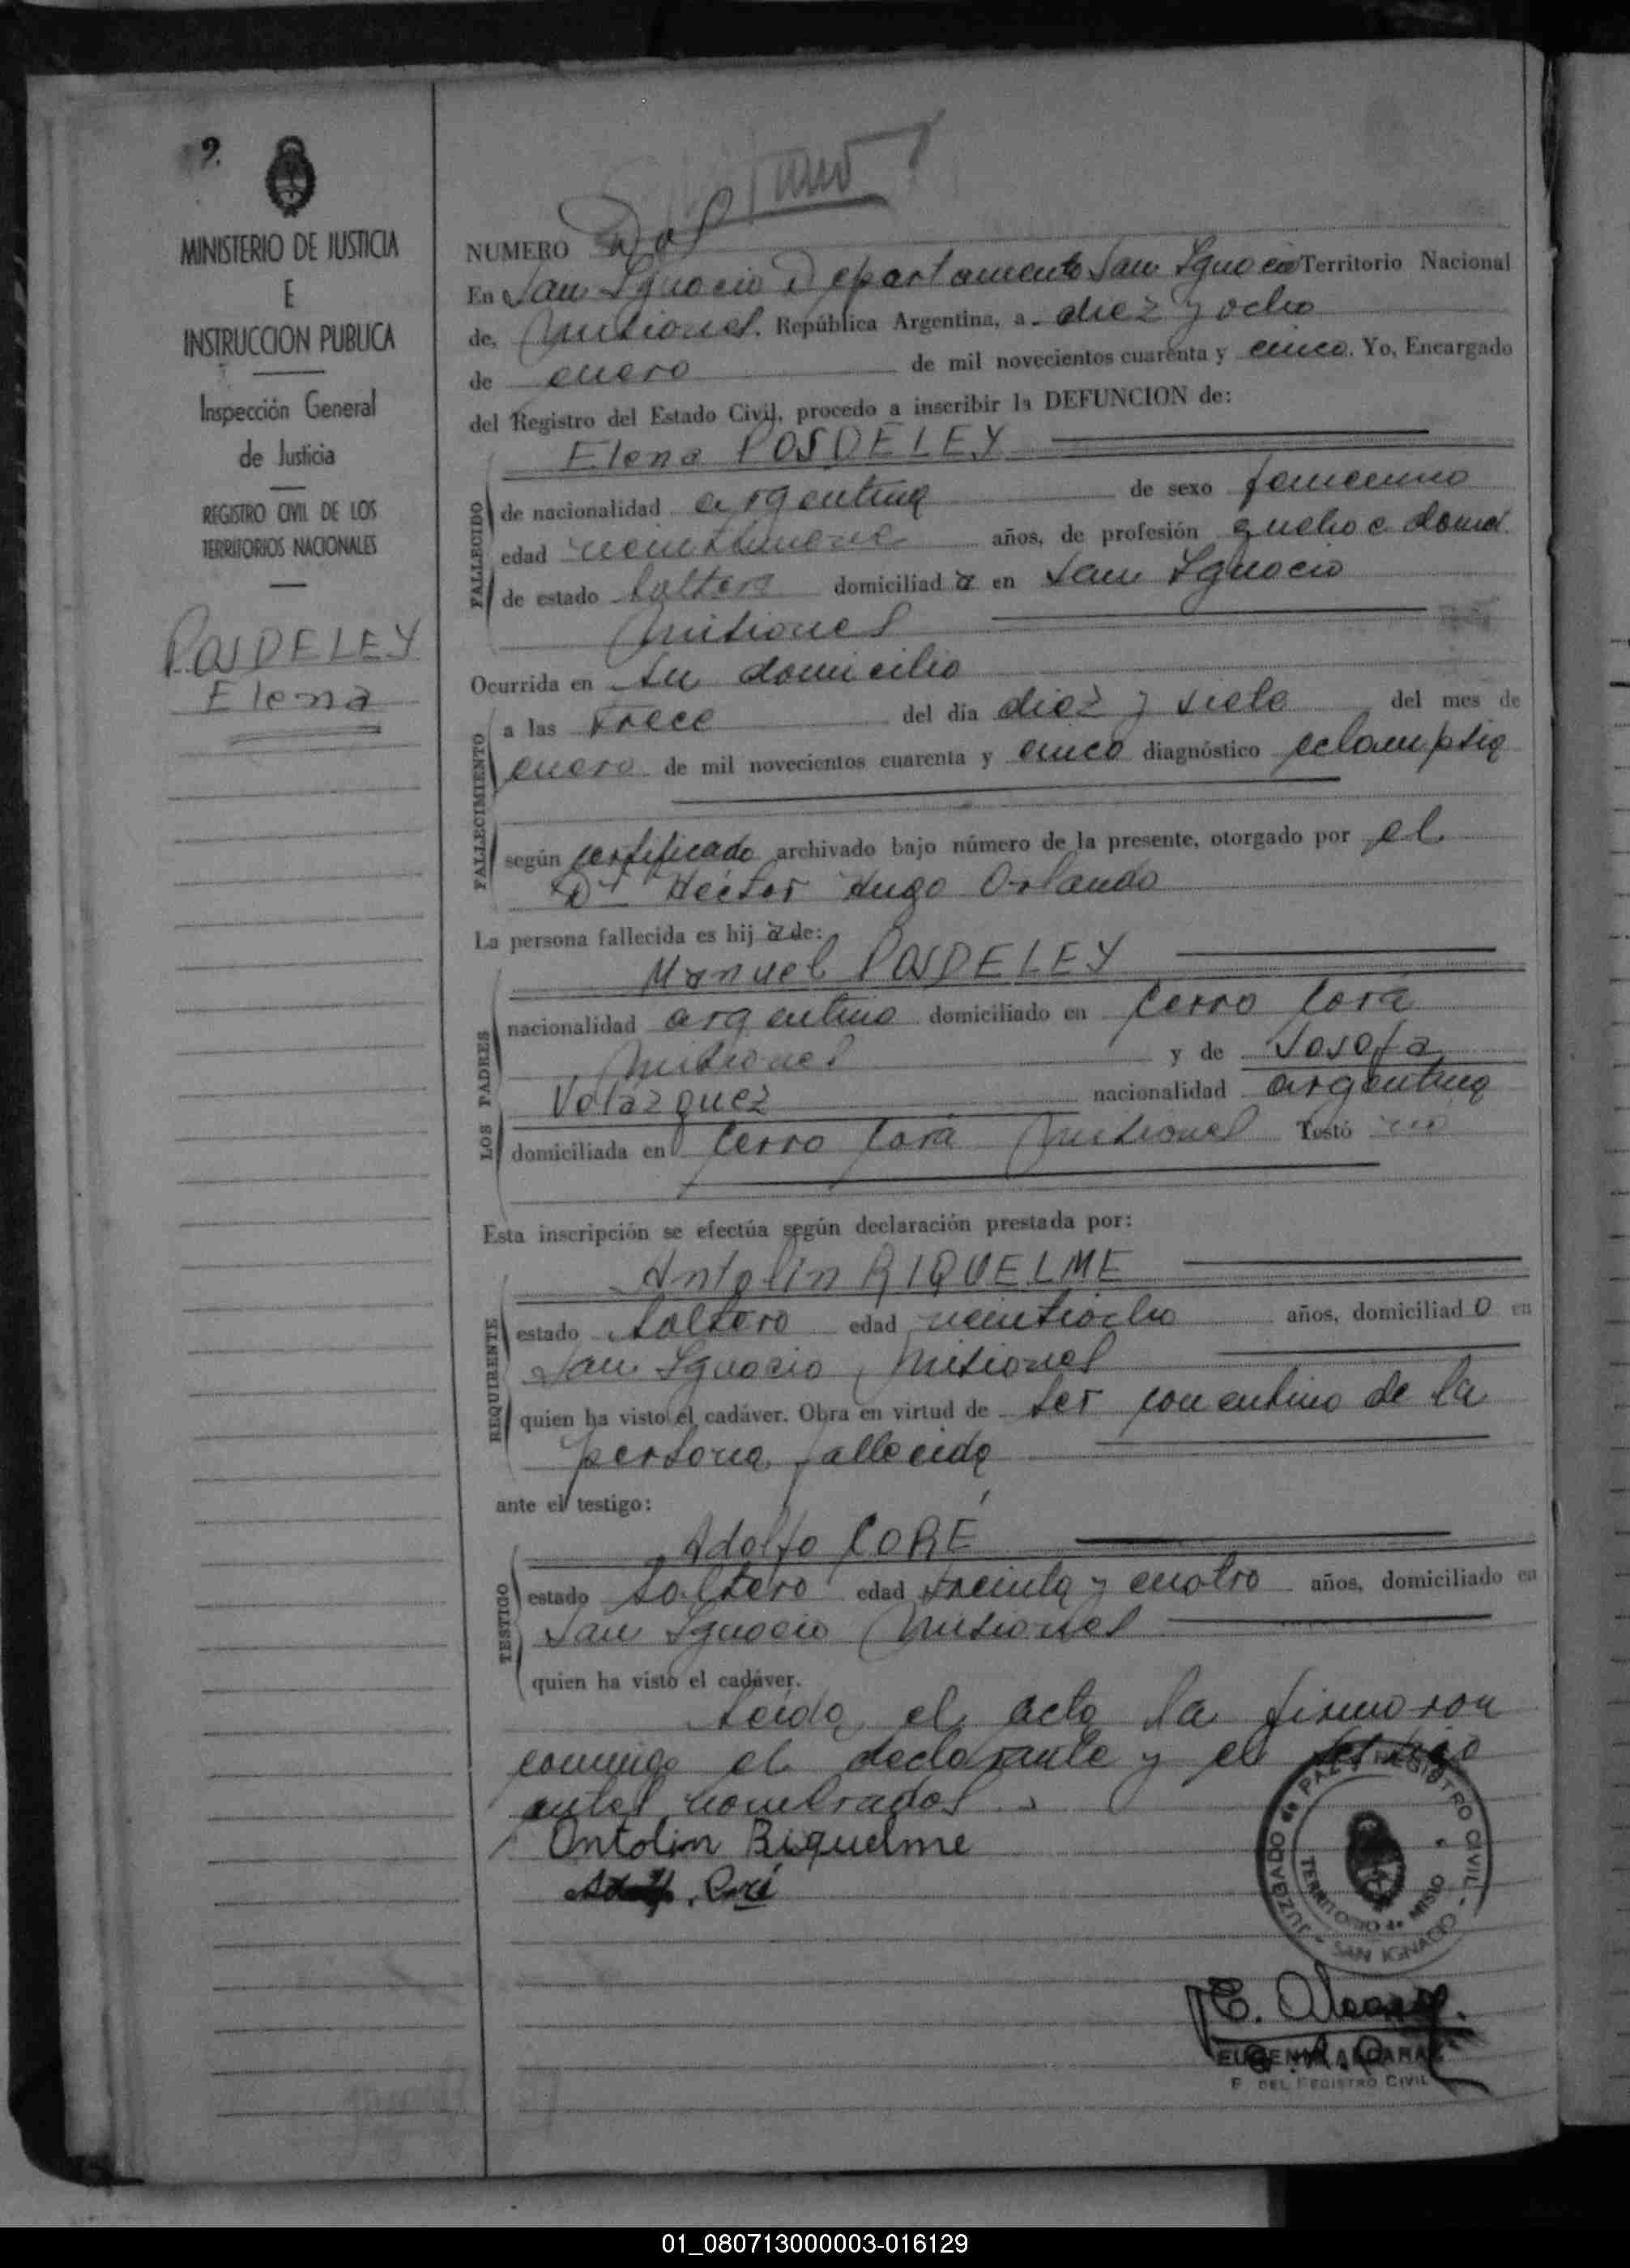 9.
MINISTERIO DE JUSTICIA
E
INSTRUCCION PUBLICA
Inspección General
de Justicia
REGISTRO CIVIL DE LOS
TERRITORIOS NACIONALES
POSDELEY
Elena
Tomo 1
NUMERO Dos
En San Ignacio Departamento San Ignacio Territorio Nacional
de, Misiones. República Argentina, a diez y ocho
de enero de mil novecientos cuarenta y cinco. Yo, Encargado
del Registro del Estado Civil, procedo a inscribir la DEFUNCION de:
Elena POSDELEY
FALLECIDO
de nacionalidad argentina de sexo femenino
edad veintinueve años, de profesión quehac domes
de estado soltera domiciliad a en San Ignacio
Misiones
Ocurrida en su domicilio
FALLECIMIENTO
a las trece del día diez y siete del mes de
enero de mil novecientos cuarenta y cinco diagnóstico eclampsia
según certificado archivado bajo número de la presente, otorgado por el
Dr Héctor Hugo Orlando
La persona fallecida es hij a de:
Manuel POSDELEY
LOS PADRES
nacionalidad argentino domiciliado en Cerro Corá
Misiones y de Josefa
Velázquez nacionalidad argentina
domiciliada en Cerro Corá Misiones Testó no
Esta inscripción se efectúa según declaración prestada por:
Antolín RIQUELME
REQUIRENTE
estado soltero edad veintiocho años, domiciliad o en
San Ignacio Misiones
quien ha visto el cadáver. Obra en virtud de ser concubino de la
persona fallecida
ante el testigo:
Adolfo CORÉ
TESTIGO
estado soltero edad treinta y cuatro años, domiciliado en
San Ignacio Misiones
quien ha visto el cadáver.
Leída el acta la firmaron
conmigo el declarante y el testigo
antes nombrados.
Antolin Riquelme
Adolf. Coré
JUZGADO de PAZ y REGISTRO CIVIL
TERRITORIO de MISIO
SAN IGNACIO
E. Alcaraz.
EUGENIO ALCARAZ
E DEL REGISTRO CIVIL
01_080713000003-016129